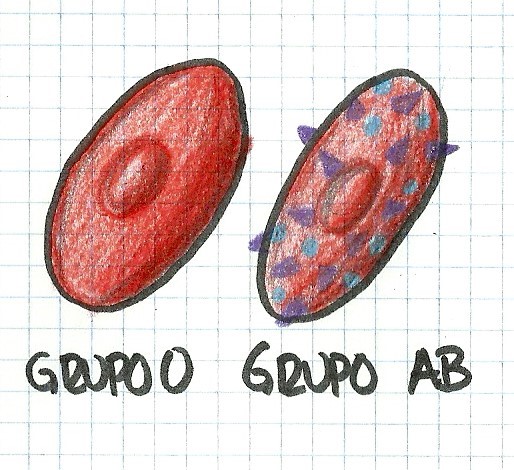 GRUPO O GRUPO AB